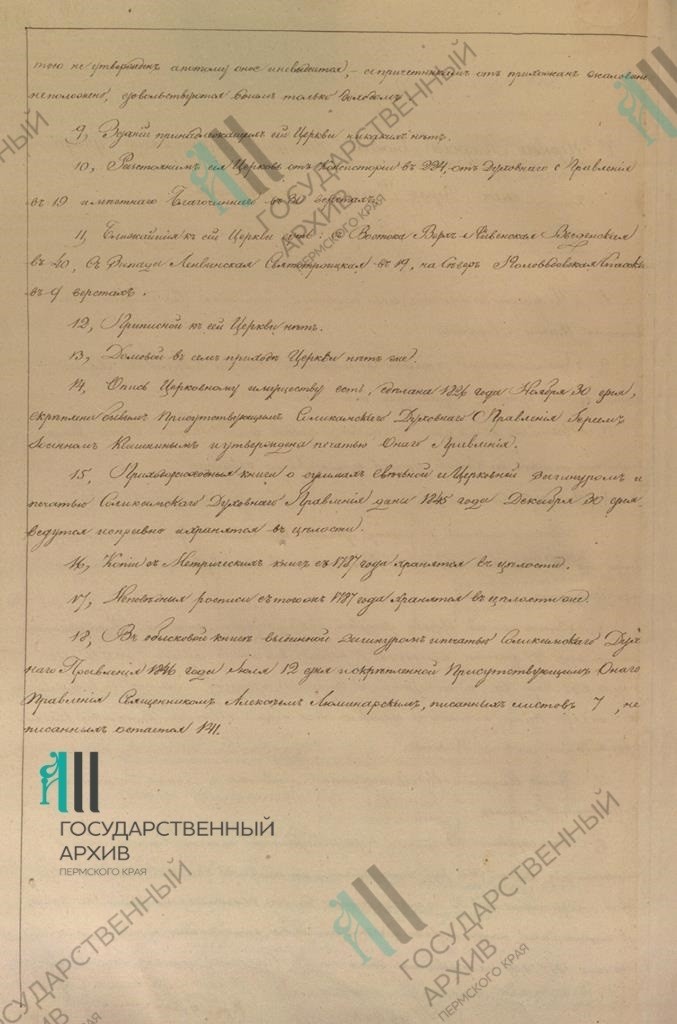 того не утвержденъ а потому оное и невыдается, – священнослужителямъ отъ прихожанъ жалованье
неположено, удовольствуются однимъ только доходомъ.
9, Зданій принадлежащихъ сей Церкви никакихъ нѣтъ.
10, Разстояніемъ сія Церковь отъ Консисторіи въ 224, отъ Духовнаго Правленія
въ 19 и мѣстнаго Благочиннаго въ 30 верстахъ.
11, Ближайшія къ сей Церкви суть: съ Востока Верхъ Введенская
въ 20, съ Запада Ленвинская Святотроицкая въ 19, на Сѣверъ
въ 9 верстахъ.
12, Приписной къ сей Церкви нѣтъ.
13, Домовой въ семъ приходѣ Церкви нѣтъ же.
14, Опись Церковному имуществу есть, сдѣлана 1826 года Ноября 30 дня,
скрѣплена бывымъ Присутствующимъ Соликамскаго Духовнаго Правленія Іереемъ
и утверждена печатью Онаго Правленія.
15, Приходорасходныя книги о суммахъ Свѣчной и Церковной за шнуромъ и
печатью Соликамскаго Духовнаго Правленія даны 1845 года Декабря 30 дня,
ведутся исправно и хранятся въ цѣлости.
16, Копіи съ Метрическихъ книгъ съ 1787 года хранятся въ цѣлости.
17, Исповѣдныя росписи съ того же 1787 года хранятся въ цѣлости же.
18, Въ обыскной книгѣ выданной за шнуромъ и печатью Соликамскаго Дух
наго Правленія 1846 года Іюля 12 дня и скрѣпленной Присутствующимъ Онаго
Правленія Священникомъ Алексѣемъ Люминарскимъ, писанныхъ листовъ 7, не
писанныхъ остается 141.
ГОСУДАРСТВЕННЫЙ
АРХИВ
ПЕРМСКОГО КРАЯ